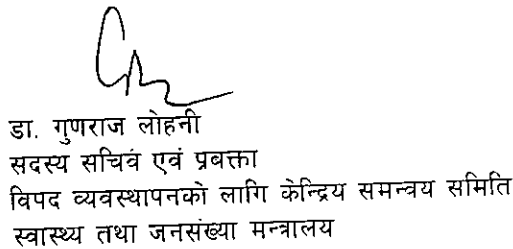 डा. गुणराज लोहनी
सदस्य सचिव एवं प्रबक्ता
विपद व्यवस्थापनको लागि केन्द्रिय समन्वय समिति
स्वास्थ्य तथा जनसंख्या मन्त्रालय